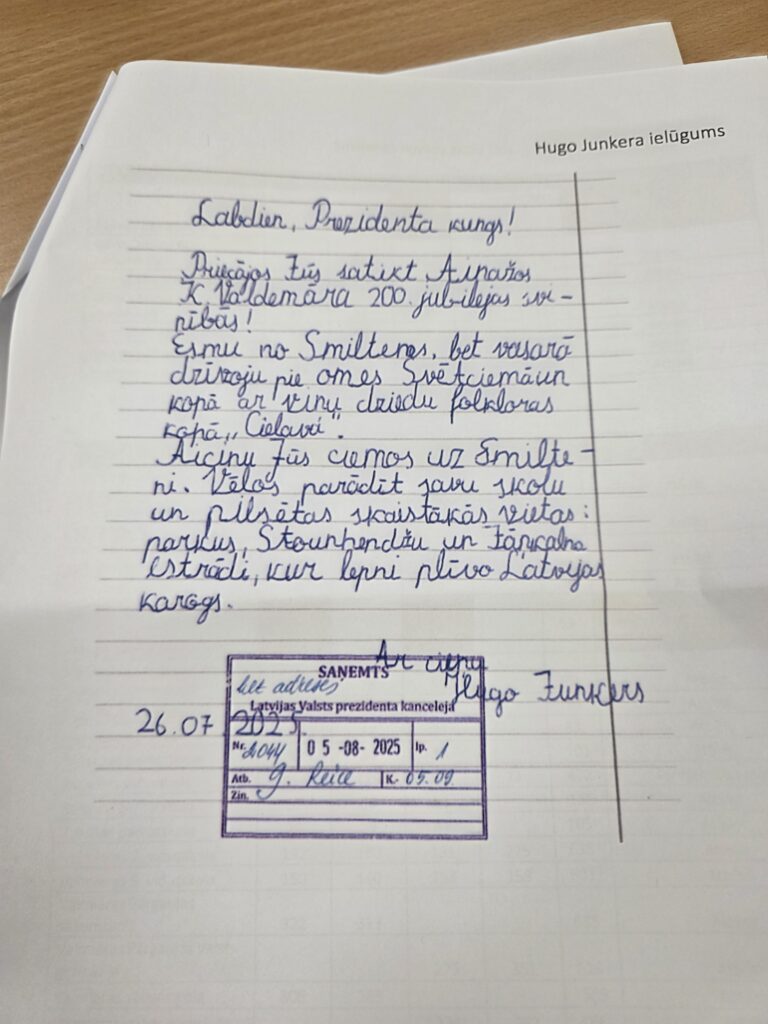 Hugo Junkera ielūgums
Labdien, Prezidenta kungs!
Priecājos Jūs satikt Ainažos
K. Valdemāra 200. jubilejas svi-
nībās!
Esmu no Smiltenes, bet vasarā
dzīvoju pie omes Svētciemā un
kopā ar viņu dziedu folkloras
kopā „Cielava".
Aicinu Jūs ciemos uz Smilte-
ni. Vēlos parādīt savu skolu
un pilsētas skaistākās vietas:
parkus, Stounhendžu un Jāņkalna
estrādi, kur lepni plīvo Latvijas
karogs.
Ar cieņu
Hugo Junkers
26.07.2025.
SAŅEMTS
bez adreses
Latvijas Valsts prezidenta kancelejā
Nr. 2044 05-08-2025 lp. 1
Atb. K. 05.09.
Zin.